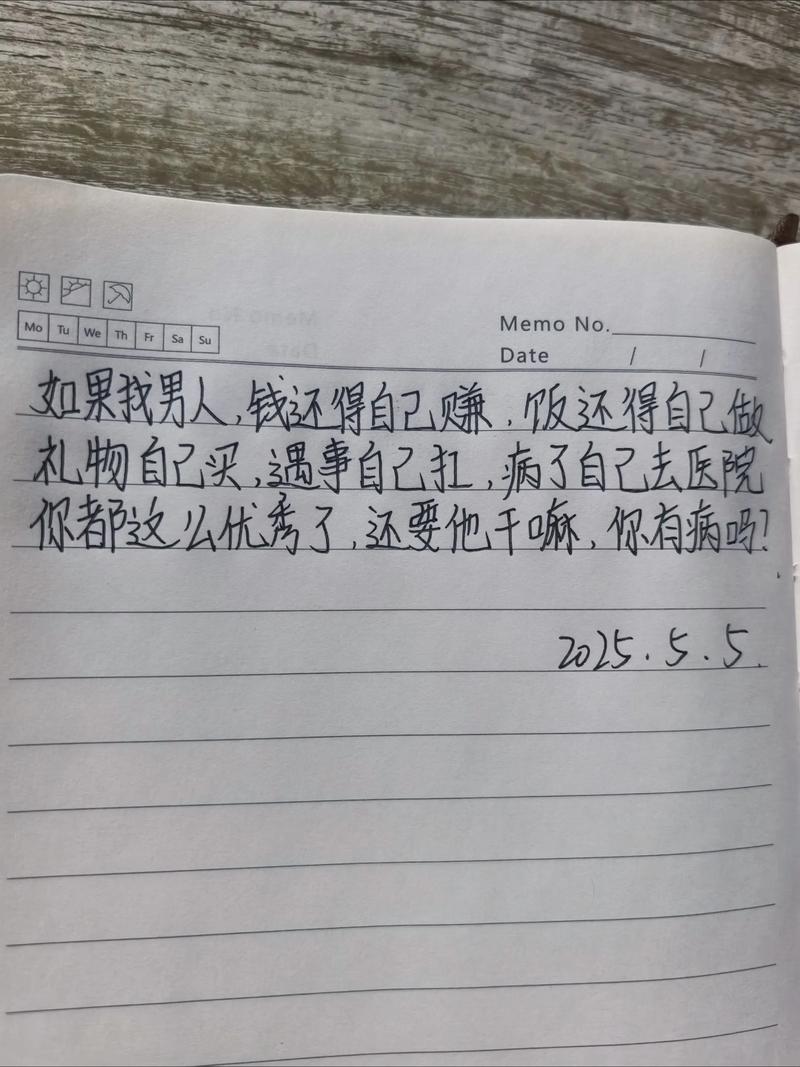 Mo Tu We Th Fr Sa Su
Memo No.
Date / /
如果找男人,钱还得自己赚,饭还得自己做
礼物自己买,遇事自己扛,病了自己去医院
你都这么优秀了,还要他干嘛,你有病吗?
2025.5.5.